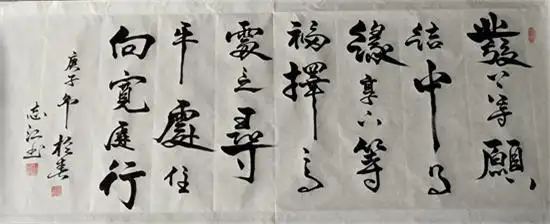 發上等願
結中等
緣享下等
福擇高
處立尋
平處住
向寬處行
庚子年春
志江书